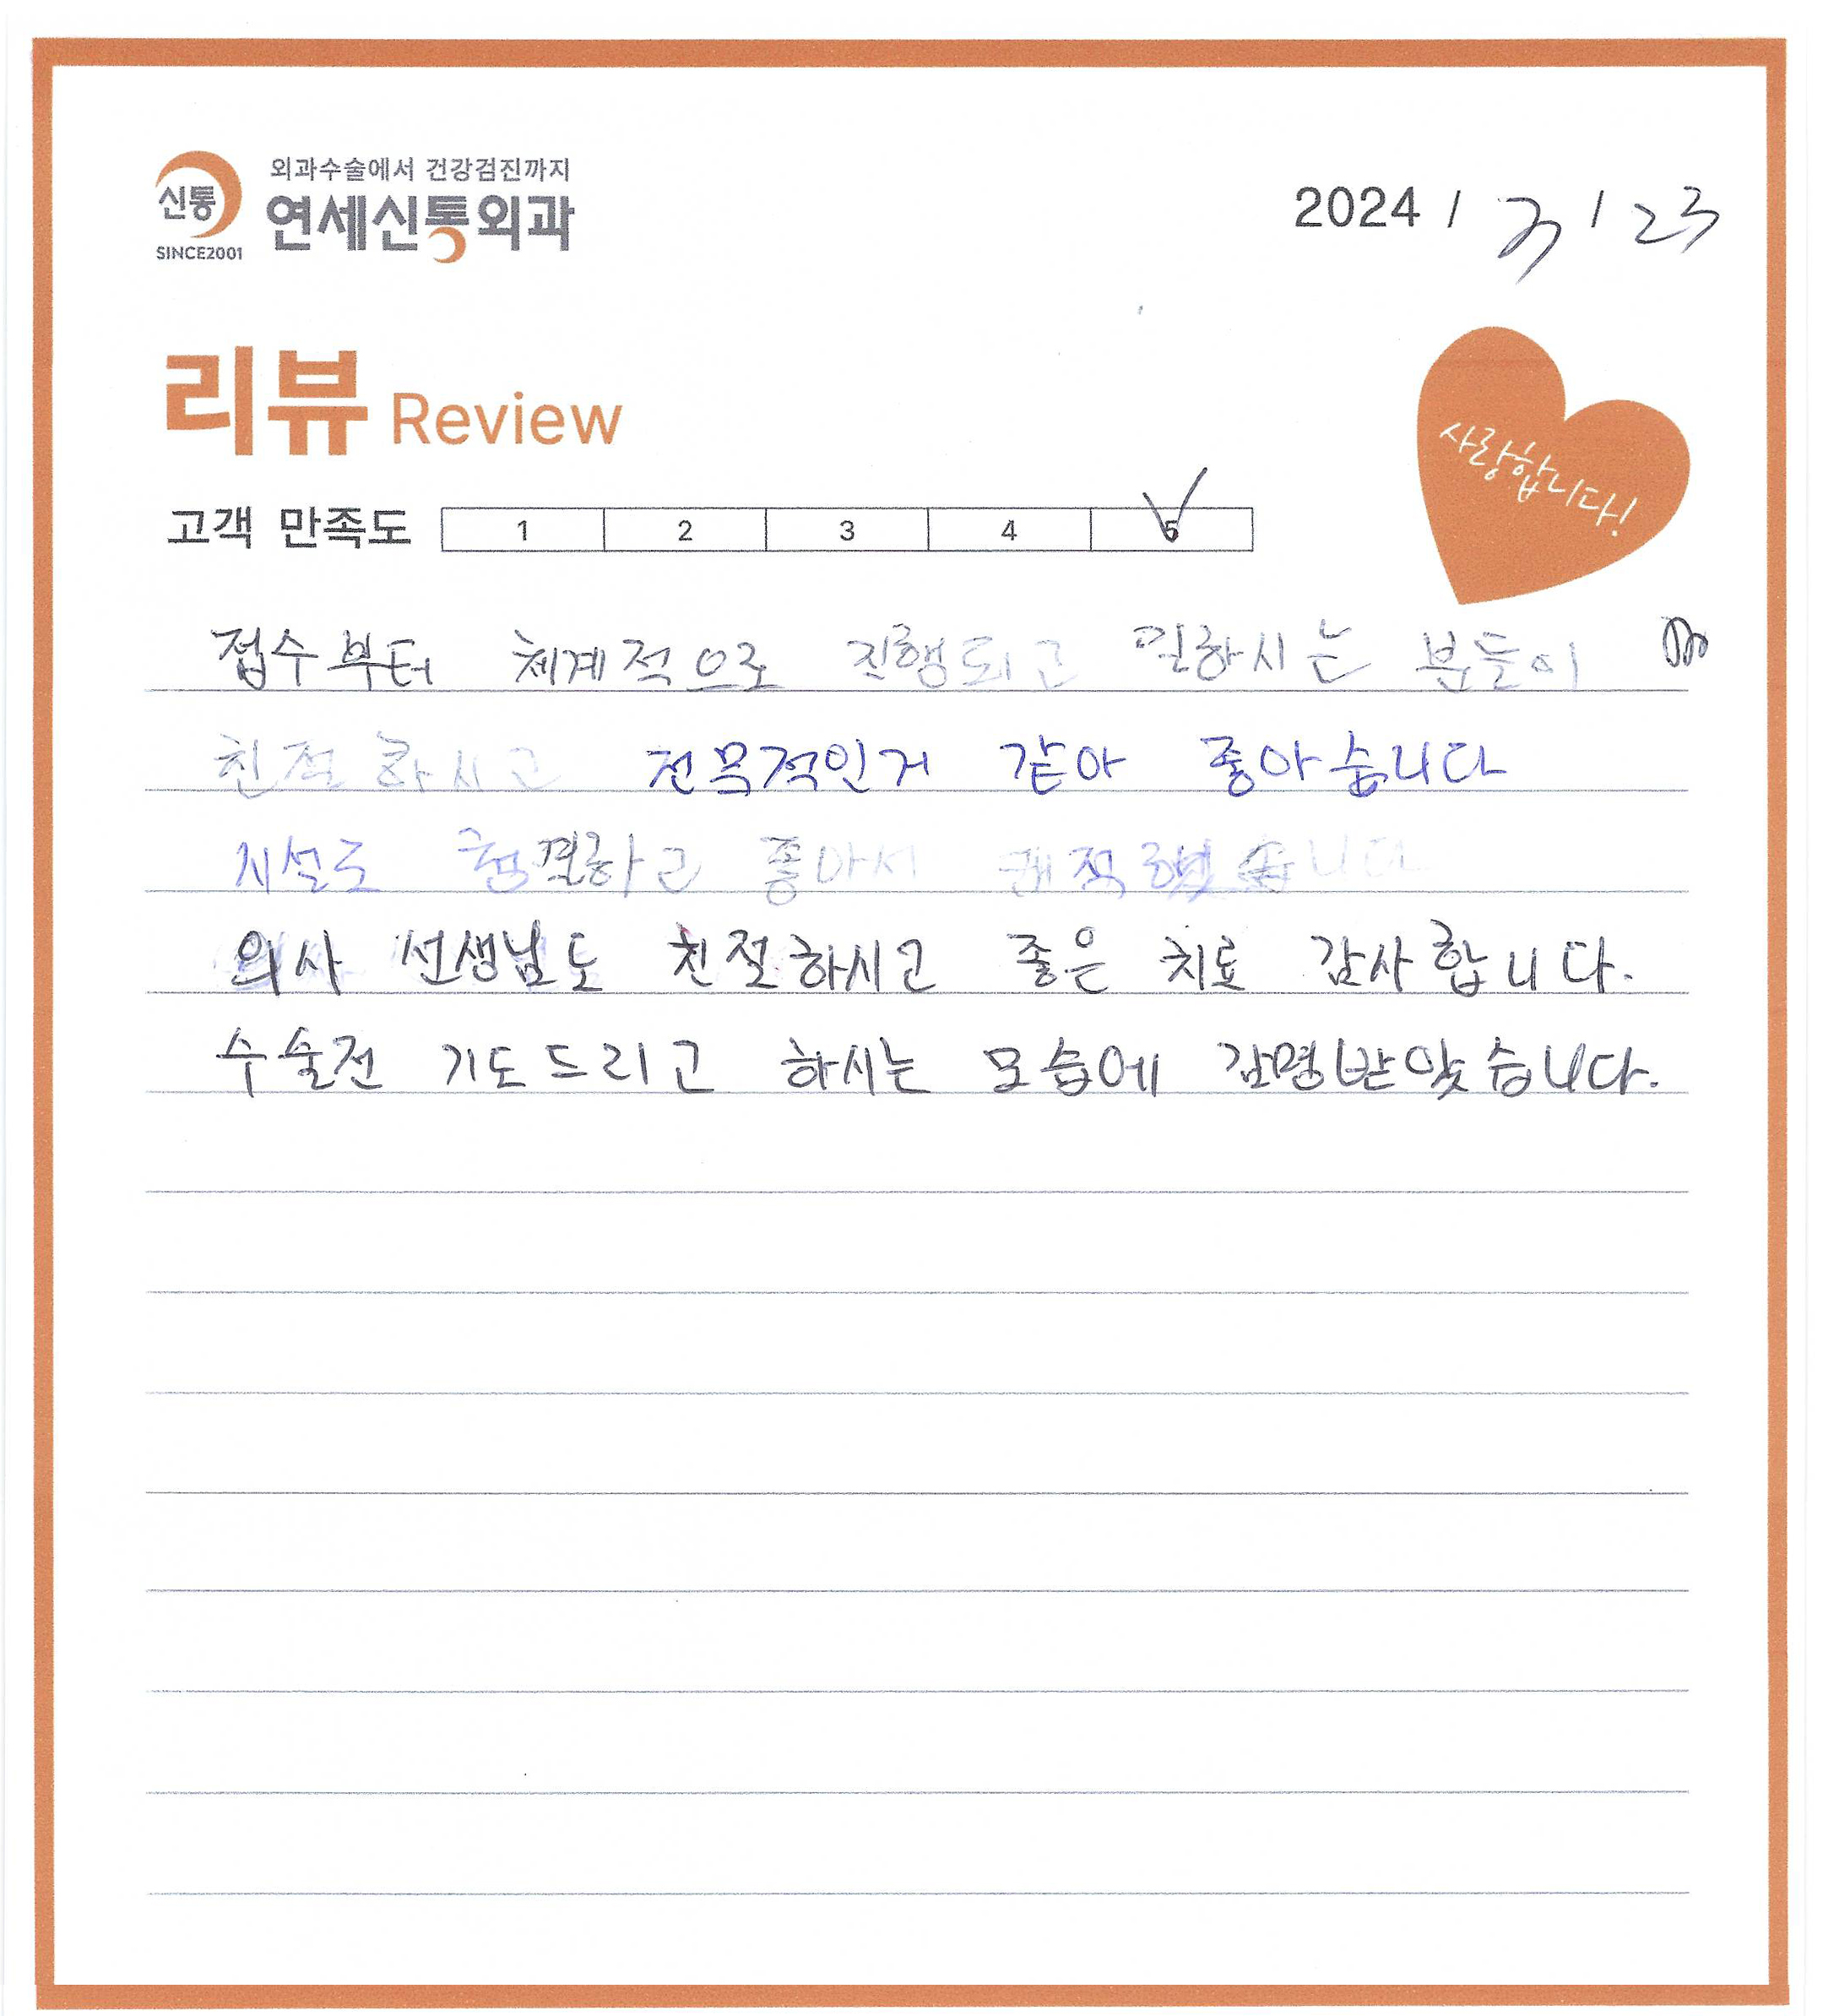 외과수술에서 건강검진까지
신통
연세신통외과
SINCE2001
2024 / 3 / 23
리뷰 Review
사랑합니다!
고객 만족도 1 2 3 4 5
접수부터 체계적으로 진행되고 일하시는 분들이
친절하시고 전무적인거 같아 좋아습니다
시설도 청결하고 좋아서 쾌적했습니다
의사 선생님도 친절하시고 좋은 치료 감사합니다.
수술전 기도드리고 하시는 모습에 감명받앗습니다.